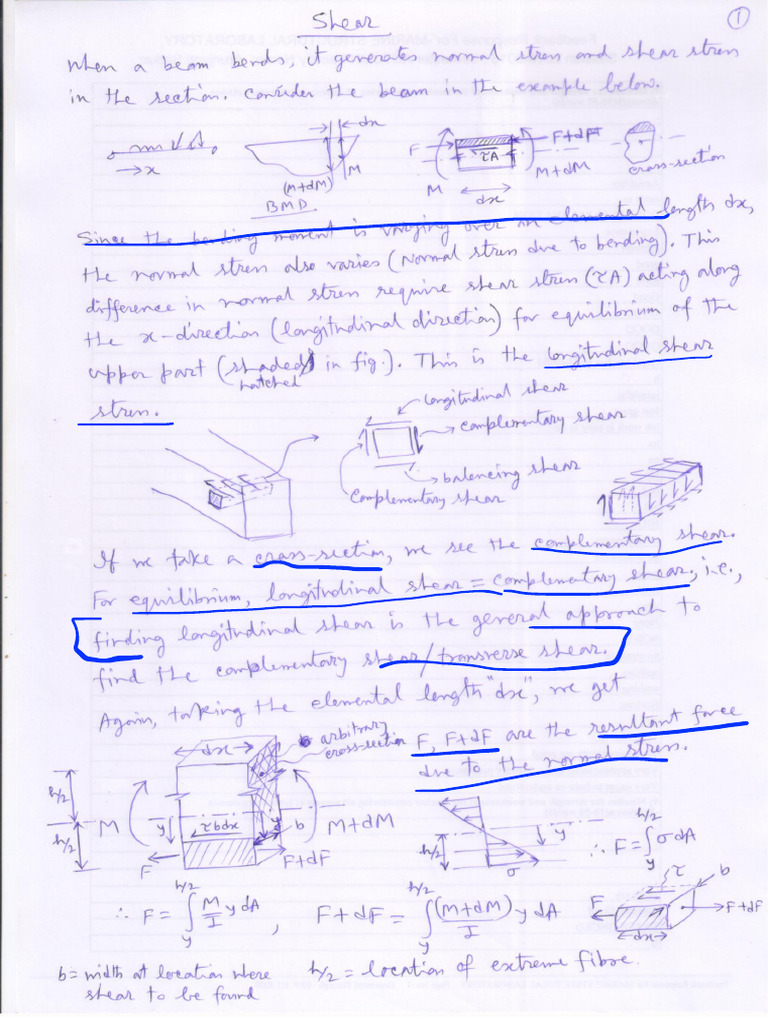 Shear
1
When a beam bends, it generates normal stress and shear stress
in the section. Consider the beam in the example below.
dx
x
M
(M+dM)
BMD
F
F+dF
τA
M
M+dM
dx
cross-section
Since the bending moment is varying over an elemental length dx,
the normal stress also varies (Normal stress due to bending). This
difference in normal stress require shear stress (τA) acting along
the x-direction (longitudinal direction) for equilibrium of the
upper part (shaded/ in fig.). This is the longitudinal shear
hatched
stress.
longitudinal shear
complementary shear
balencing shear
complementary shear
If we take a cross-section, we see the complementary shear.
For equilibrium, longitudinal shear = complementary shear, i.e.,
finding longitudinal shear is the general approach to
find the complementary shear/transverse shear.
Again, taking the elemental length "dx", we get
dx
arbitrary
cross-section
F, F+dF are the resultant force
due to the normal stress.
h/2
h/2
M
y
τbdx
b
M+dM
F
F+dF
h/2
y
σ
∴ F = ∫_y^{h/2} σ dA
∴ F = ∫_y^{h/2} M/I y dA , F+dF = ∫_y^{h/2} (M+dM)/I y dA
τ
b
F
F+dF
dx
b = width at location where
shear to be found
h/2 = location of extreme fibre.